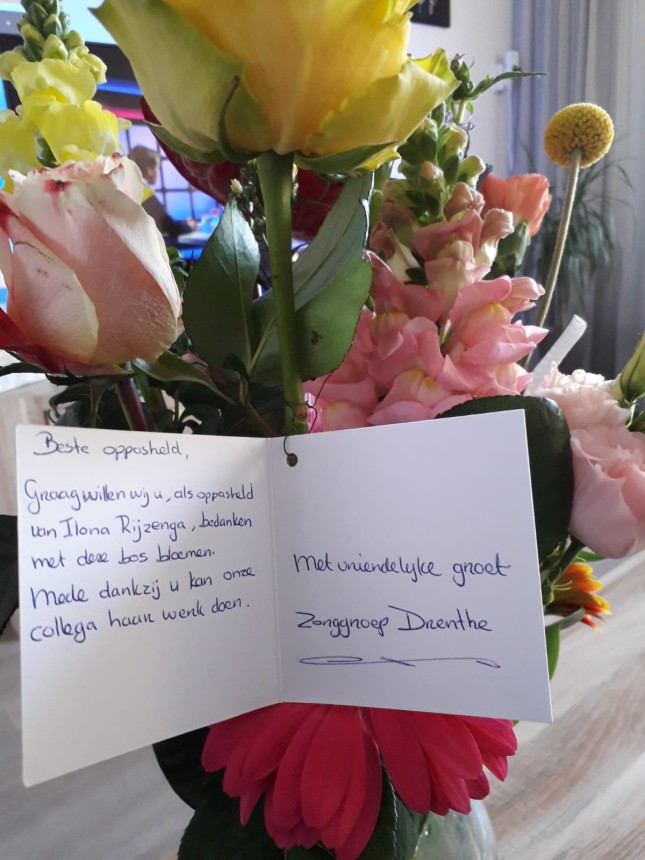 Beste oppasheld,
Graag willen wij u, als oppasheld
van Ilona Rijzenga, bedanken
met deze bos bloemen.
Mede dankzij u kan onze
collega haar werk doen.
Met vriendelijke groet
Zorggroep Drenthe